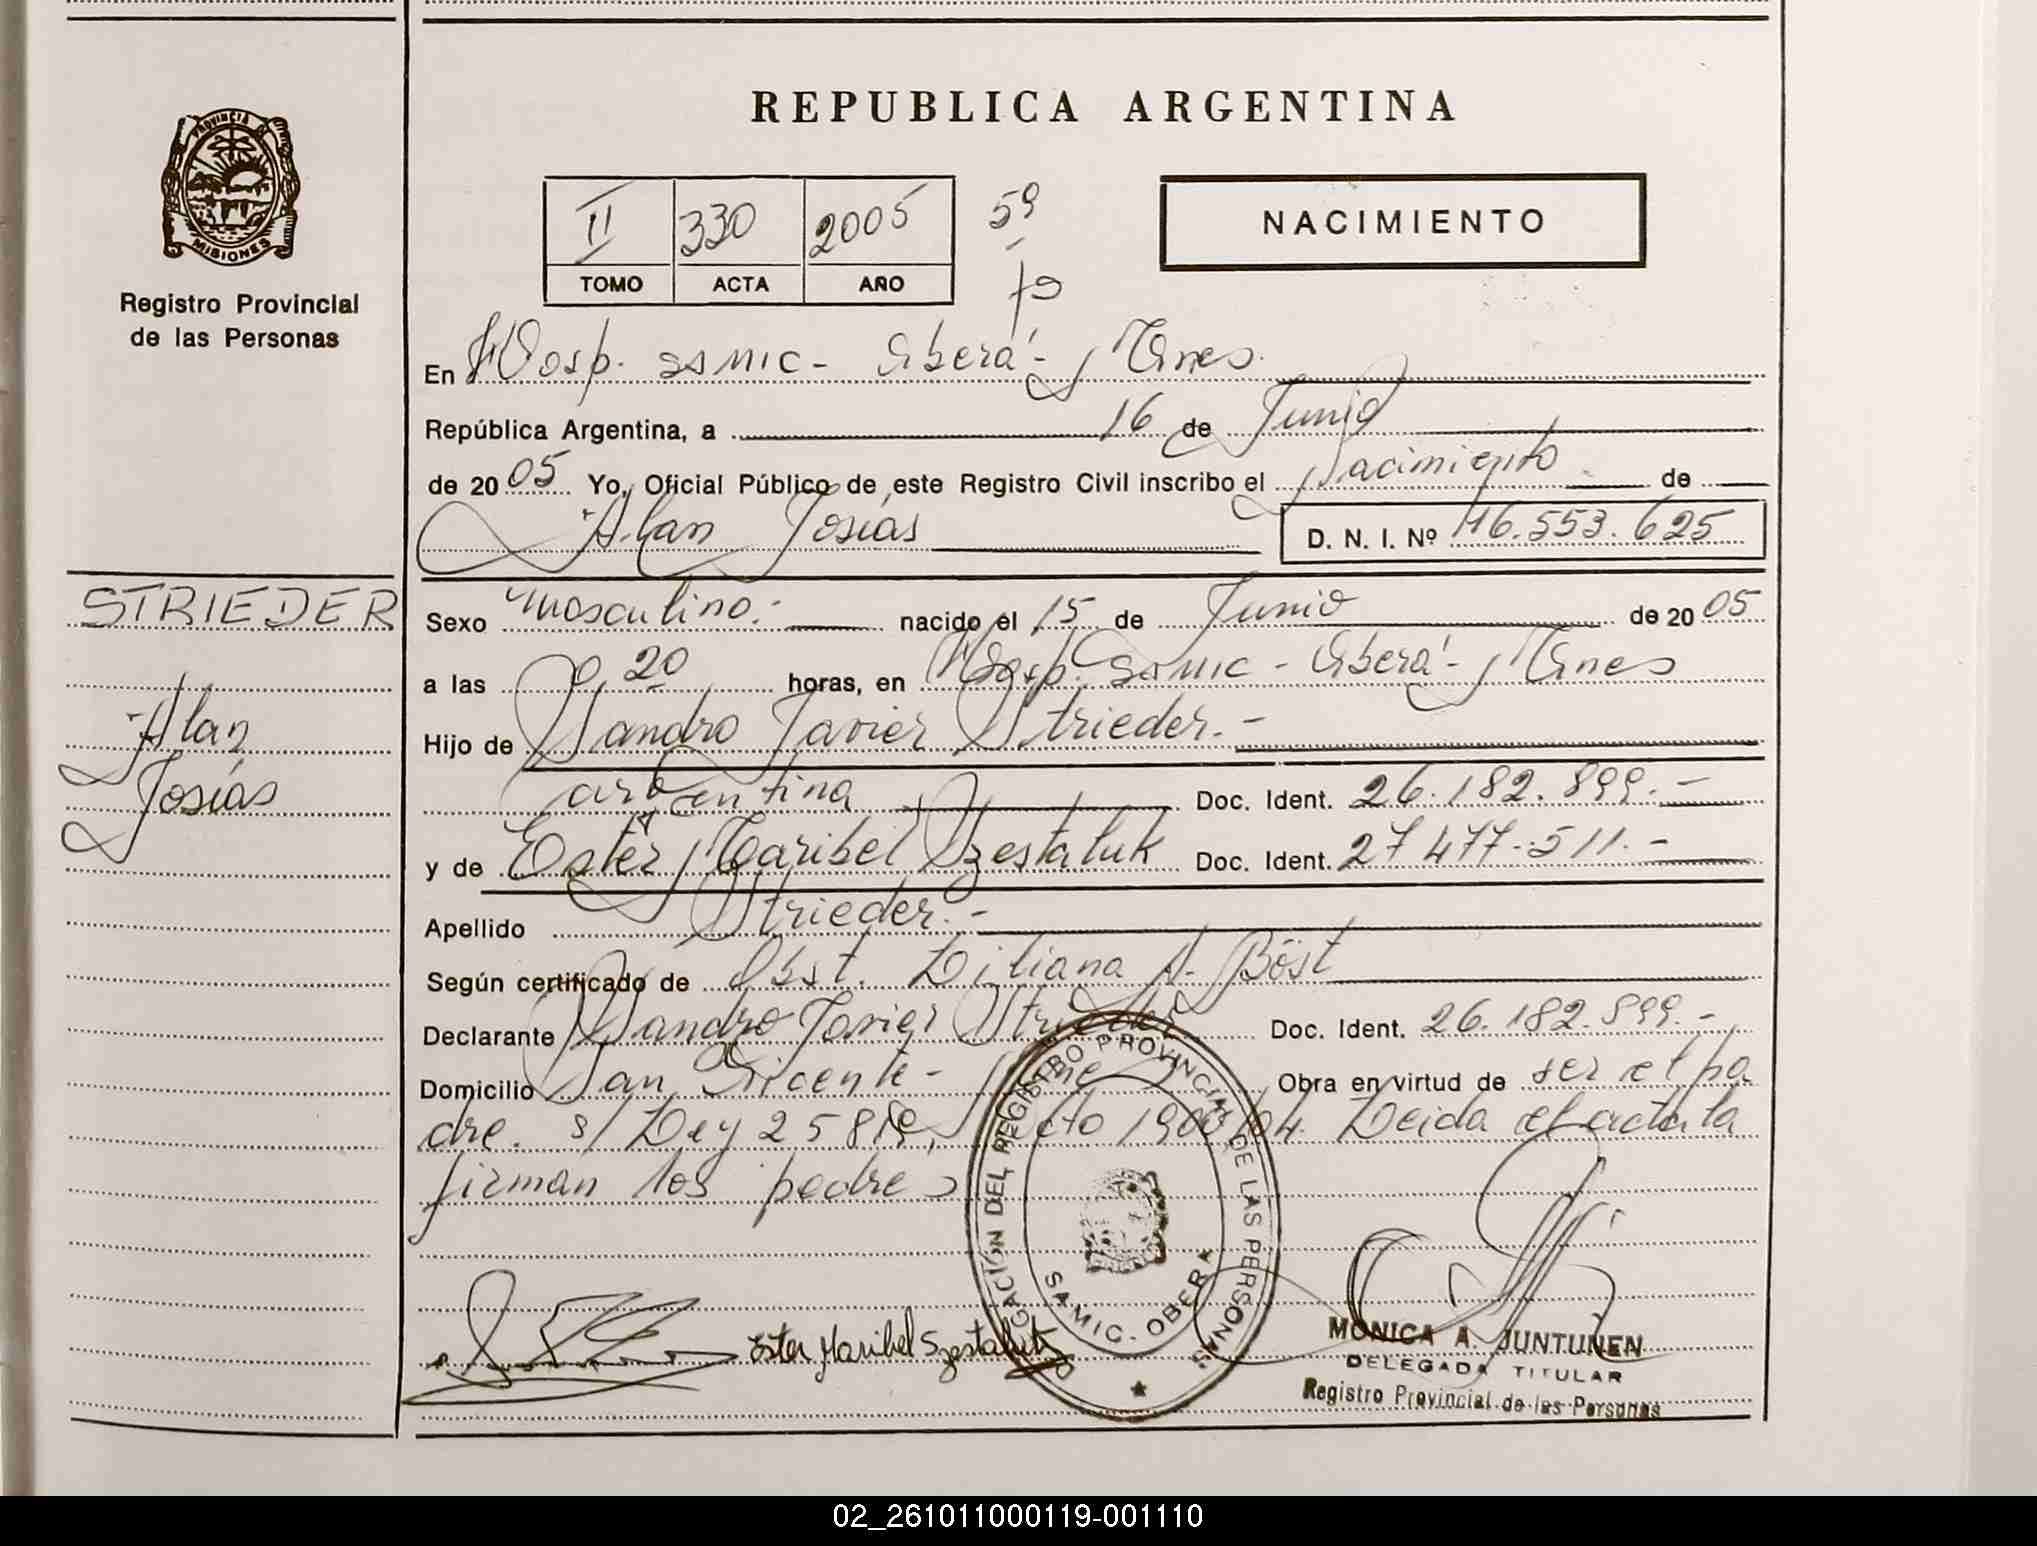 REPUBLICA ARGENTINA
PROVINCIA D
MISIONES
Registro Provincial
de las Personas
II 330 2005 5º
TOMO ACTA AÑO
Fº
NACIMIENTO
En Hosp. SAMIC - Oberá - Mnes.
República Argentina, a 16 de Junio
de 2005 Yo, Oficial Público de este Registro Civil inscribo el Nacimiento de
Alan Josías D. N. I. Nº 46.553.625
STRIEDER
Alan
Josías
Sexo masculino. nacido el 15 de Junio de 2005
a las 0,20 horas, en Hosp. SAMIC - Oberá - Mnes
Hijo de Sandro Javier Strieder.-
argentina Doc. Ident. 26.182.899.-
y de Ester Maribel Szestaluk Doc. Ident. 27 477.511.-
Apellido Strieder.-
Según certificado de Obst. Liliana A. Böst
Declarante Sandro Javier Strieder Doc. Ident. 26.182.899.-
Domicilio San Vicente - Mnes Obra en virtud de ser el pa
dre. s/ Ley 25819, Dto 1900/04. Leida el acta la
firman los padres
Ester Maribel Szestaluk
DELEGACIÓN DEL REGISTRO PROVINCIAL DE LAS PERSONAS
SAMIC - OBERA
MONICA A. JUNTUNEN
DELEGADA TITULAR
Registro Provincial de las Personas
02_261011000119-001110